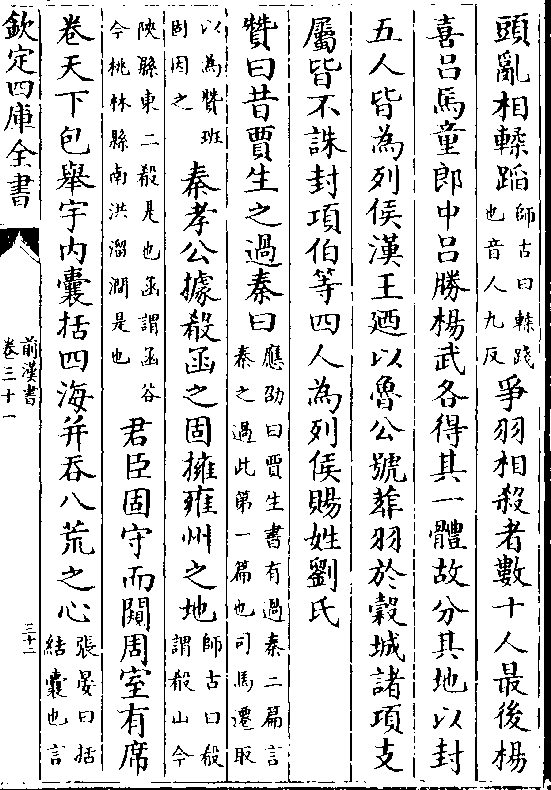 頭亂相轥蹈師古曰轥踐也音人九反爭羽相殺者數十人最後楊
喜吕馬童郎中吕勝楊武各得其一體故分其地以封
五人皆為列侯漢王廼以魯公號葬羽於穀城諸項支
屬皆不誅封項伯等四人為列侯賜姓劉氏
贊曰昔賈生之過秦曰應劭曰賈生書有過秦二篇言秦之過此第一篇也司馬遷取
以為贊班固因之秦孝公據殽函之固擁雍州之地師古曰殽謂殽山今
陜縣東二殽是也函謂函谷今桃林縣南洪溜澗是也君臣固守而闚周室有席
卷天下包舉宇内囊括四海并吞八荒之心張晏曰括結囊也言
欽定四庫全書
前漢書
卷三十一
三十二